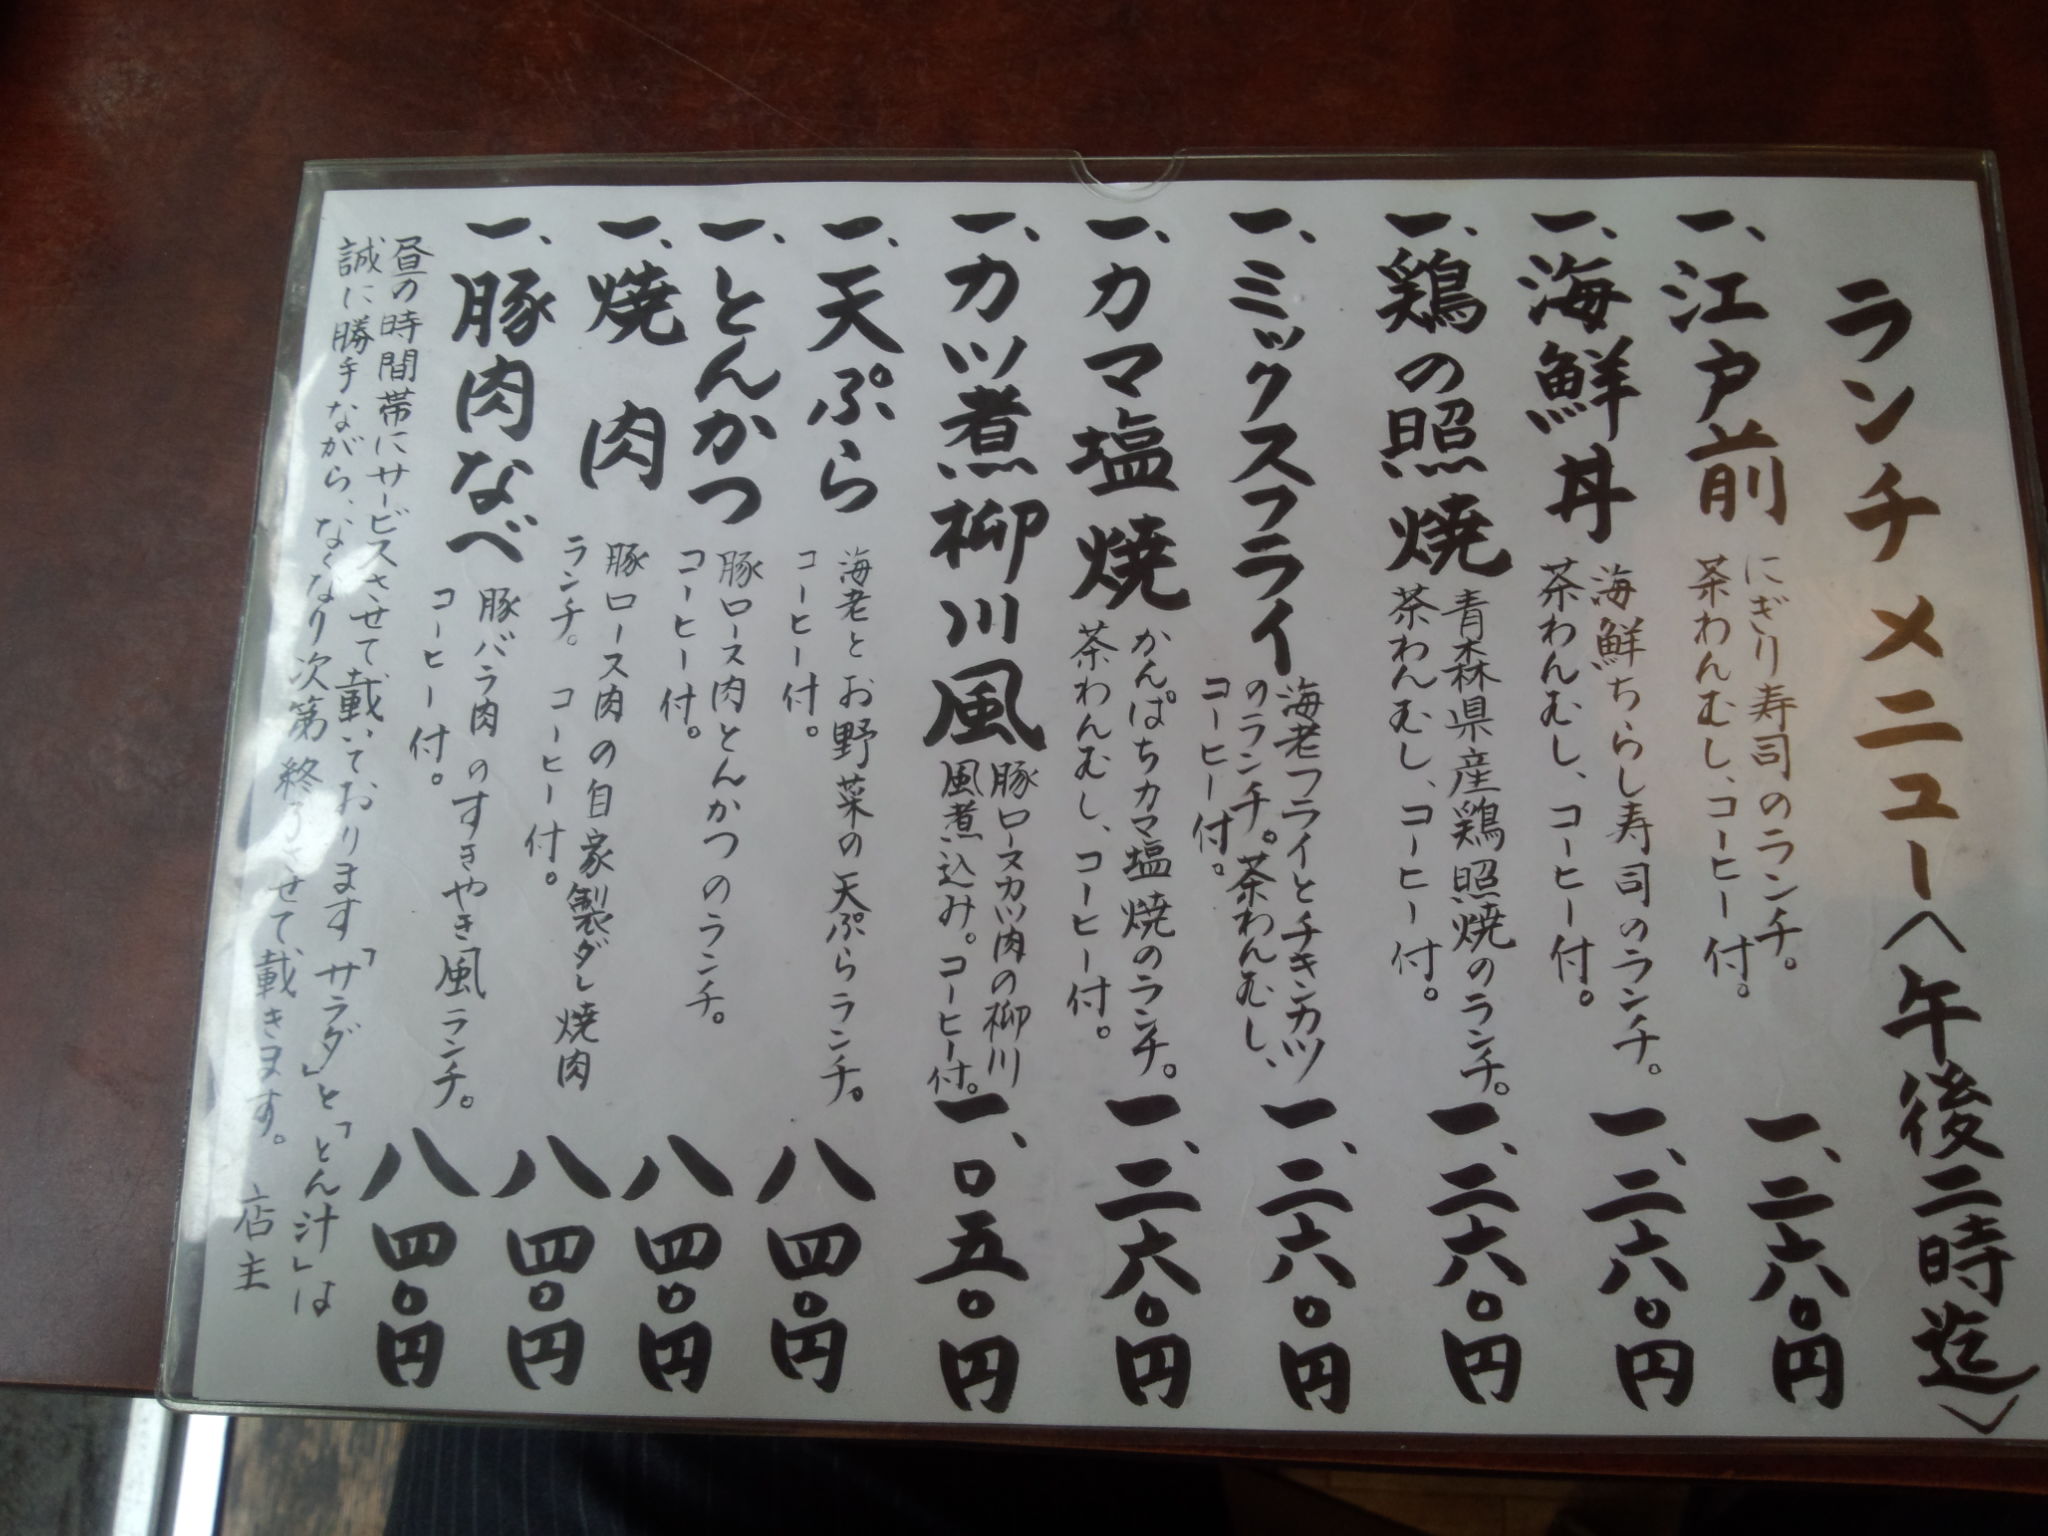 ランチメニュー〈午後二時迄〉
一、江戸前
にぎり寿司のランチ。
茶わんむし、コーヒー付。
一、二六〇円
一、海鮮丼
海鮮ちらし寿司のランチ。
茶わんむし、コーヒー付。
一、二六〇円
一、鶏の照焼
青森県産鶏照焼のランチ。
茶わんむし、コーヒー付。
一、二六〇円
一、ミックスフライ
海老フライとチキンカツ
のランチ。茶わんむし、
コーヒー付。
一、二六〇円
一、カマ塩焼
かんぱちカマ塩焼のランチ。
茶わんむし、コーヒー付。
一、二六〇円
一、カツ煮柳川風
豚ロースカツ肉の柳川
風煮込み。コーヒー付。
一、〇五〇円
一、天ぷら
海老とお野菜の天ぷらランチ。
コーヒー付。
八四〇円
一、とんかつ
豚ロース肉とんかつのランチ。
コーヒー付。
八四〇円
一、焼肉
豚ロース肉の自家製ダレ焼肉
ランチ。コーヒー付。
八四〇円
一、豚肉なべ
豚バラ肉のすきやき風ランチ。
コーヒー付。
八四〇円
昼の時間帯にサービスさせて載いております「サラダ」と「とん汁」は
誠に勝手ながら、なくなり次第終らさせて載きます。 店主